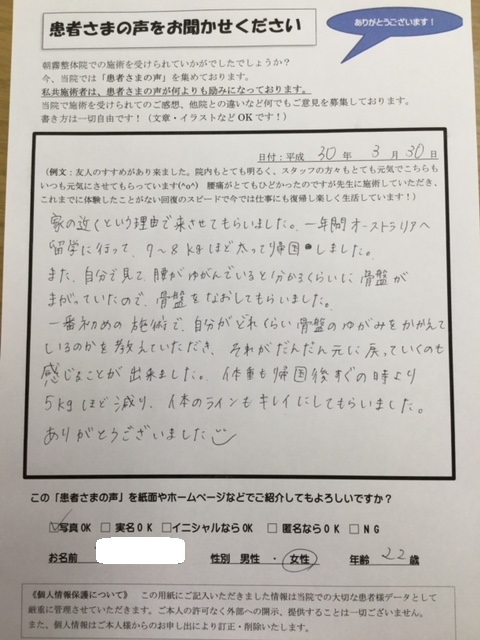 患者さまの声をお聞かせください
ありがとうございます！
朝霧整体院での施術を受けられていかがでしたでしょうか？
今、当院では「患者さまの声」を集めております。
私共施術者は、患者さまの声が何よりも励みになっております。
当院で施術を受けられてのご感想、他院との違いなど何でもご意見を募集しております。
書き方は一切自由です！（文章・イラストなどOKです！）
日付：平成 30 年 3 月 30 日
（例文：友人のすすめがあり来ました。院内もとても明るく、スタッフの方々もとても元気でこちらも
いつも元気にさせてもらっています(^o^) 腰痛がとてもひどかったのですが先生に施術していただき、
これまでに体験したことがない回復のスピードで今では仕事にも復帰し楽しく生活しています！）
家の近くという理由で来させてもらいました。一年間オーストラリアへ
留学に行って、7〜8kgほど太って帰国しました。
また、自分で見て、腰がゆがんでいると分かるくらいに骨盤が
まがっていたので、骨盤をなおしてもらいました。
一番初めの施術で、自分がどれくらい骨盤のゆがみをかかえて
いるのかを教えていただき、それがだんだん元に戻っていくのも
感じることが出来ました。体重も帰国後すぐの時より
5kgほど減り、体のラインもキレイにしてもらいました。
ありがとうございました
この「患者さまの声」を紙面やホームページなどでご紹介してもよろしいですか？
☑写真OK □実名OK □イニシャルならOK □匿名ならOK □NG
お名前 性別 男性 ・ 女性 年齢 22 歳
《個人情報保護について》 この用紙にご記入いただきました情報は当院での大切な患者様データとして
厳重に管理させていただきます。ご本人の許可なく外部への開示、提供することは一切ございません。
また、個人情報はご本人様からのお申し出により訂正・削除いたします。